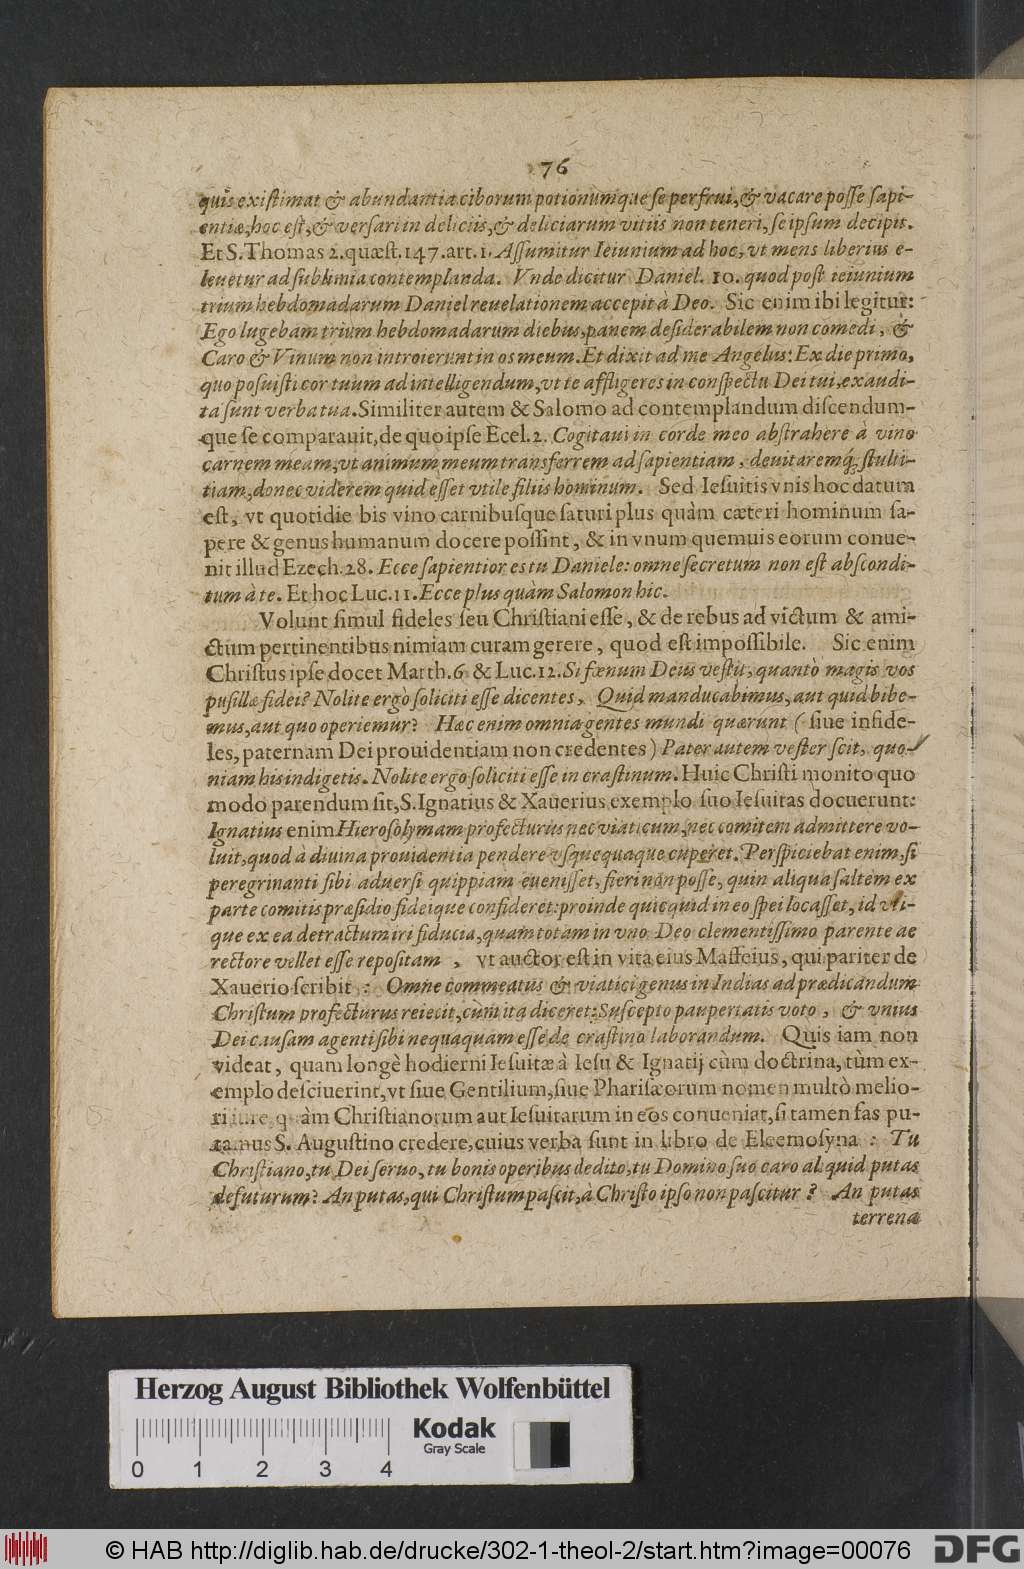 76
quis existimat & abundantia ciborum potionumque se perfrui, & vacare posse sapi-
entiæ, hoc est, & versari in deliciis, & deliciarum vitiis non teneri, se ipsum decipit.
Et S. Thomas 2. quæst. 147. art. 1. Assumitur Ieiunium ad hoc, vt mens liberius e-
leuetur ad sublimia contemplanda. Vnde dicitur Daniel. 10. quod post ieiunium
trium hebdomadarum Daniel reuelationem accepit à Deo. Sic enim ibi legitur:
Ego lugebam trium hebdomadarum diebus, panem desiderabilem non comedi, &
Caro & Vinum non introierunt in os meum. Et dixit ad me Angelus: Ex die primo,
quo posuisti cor tuum ad intelligendum, vt te affligeres in conspectu Dei tui, exaudi-
ta sunt verba tua. Similiter autem & Salomo ad contemplandum discendum-
que se comparauit, de quo ipse Eccl. 2. Cogitaui in corde meo abstrahere à vino
carnem meam, vt animum meum transferrem ad sapientiam, deuitaremq́; stulti-
tiam, donec viderem quid esset vtile filiis hominum. Sed Iesuitis vnis hoc datum
est, vt quotidie bis vino carnibusque saturi plus quàm cæteri hominum sa-
pere & genus humanum docere possint, & in vnum quemuis eorum conue-
nit illud Ezech. 28. Ecce sapientior es tu Daniele: omne secretum non est abscondi-
tum à te. Et hoc Luc. 11. Ecce plus quàm Salomon hic.
Volunt simul fideles seu Christiani esse, & de rebus ad victum & ami-
ctum pertinentibus nimiam curam gerere, quod est impossibile. Sic enim
Christus ipse docet Matth. 6 & Luc. 12. Si fœnum Deus vestit, quantò magis vos
pusillæ fidei? Nolite ergò soliciti esse dicentes, Quid manducabimus, aut quid bibe-
mus, aut quo operiemur? Hæc enim omnia gentes mundi quærunt (siue infide-
les, paternam Dei prouidentiam non credentes) Pater autem vester scit, quo-
niam his indigetis. Nolite ergo soliciti esse in crastinum. Huic Christi monito quo
modo parendum sit, S. Ignatius & Xauerius exemplo suo Iesuitas docuerunt:
Ignatius enim Hierosolymam profecturus nec viaticum, nec comitem admittere vo-
luit, quod à diuina prouidentia pendere vsquequaque cuperet. Perspiciebat enim, si
peregrinanti sibi aduersi quippiam euenisset, fieri non posse, quin aliqua saltem ex
parte comitis præsidio fideique confideret: proinde quicquid in eo spei locasset, id vti-
que ex ea detractum iri fiducia, quam totam in vno Deo clementissimo parente ac
rectore vellet esse repositam, vt auctor est in vita eius Maffeius, qui pariter de
Xauerio scribit: Omne commeatus & viatici genus in Indias ad prædicandum
Christum profecturus reiecit, cùm ita diceret: Suscepto paupertatis voto, & vnius
Dei causam agenti sibi nequaquam esse de crastino laborandum. Quis iam non
videat, quam longè hodierni Iesuitæ à Iesu & Ignatij cùm doctrina, tùm ex-
emplo desciuerint, vt siue Gentilium, siue Pharisæorum nomen multò melio-
ri iure quàm Christianorum aut Iesuitarum in eos conueniat, si tamen fas pu-
tamus S. Augustino credere, cuius verba sunt in libro de Eleemosyna: Tu
Christiano, tu Dei seruo, tu bonis operibus dedito, tu Domino suo caro aliquid putas
defuturum? An putas, qui Christum pascit, à Christo ipso non pascitur? An putas
terrena
Herzog August Bibliothek Wolfenbüttel
Kodak
Gray Scale
0 1 2 3 4
© HAB http://diglib.hab.de/drucke/302-1-theol-2/start.htm?image=00076
DFG